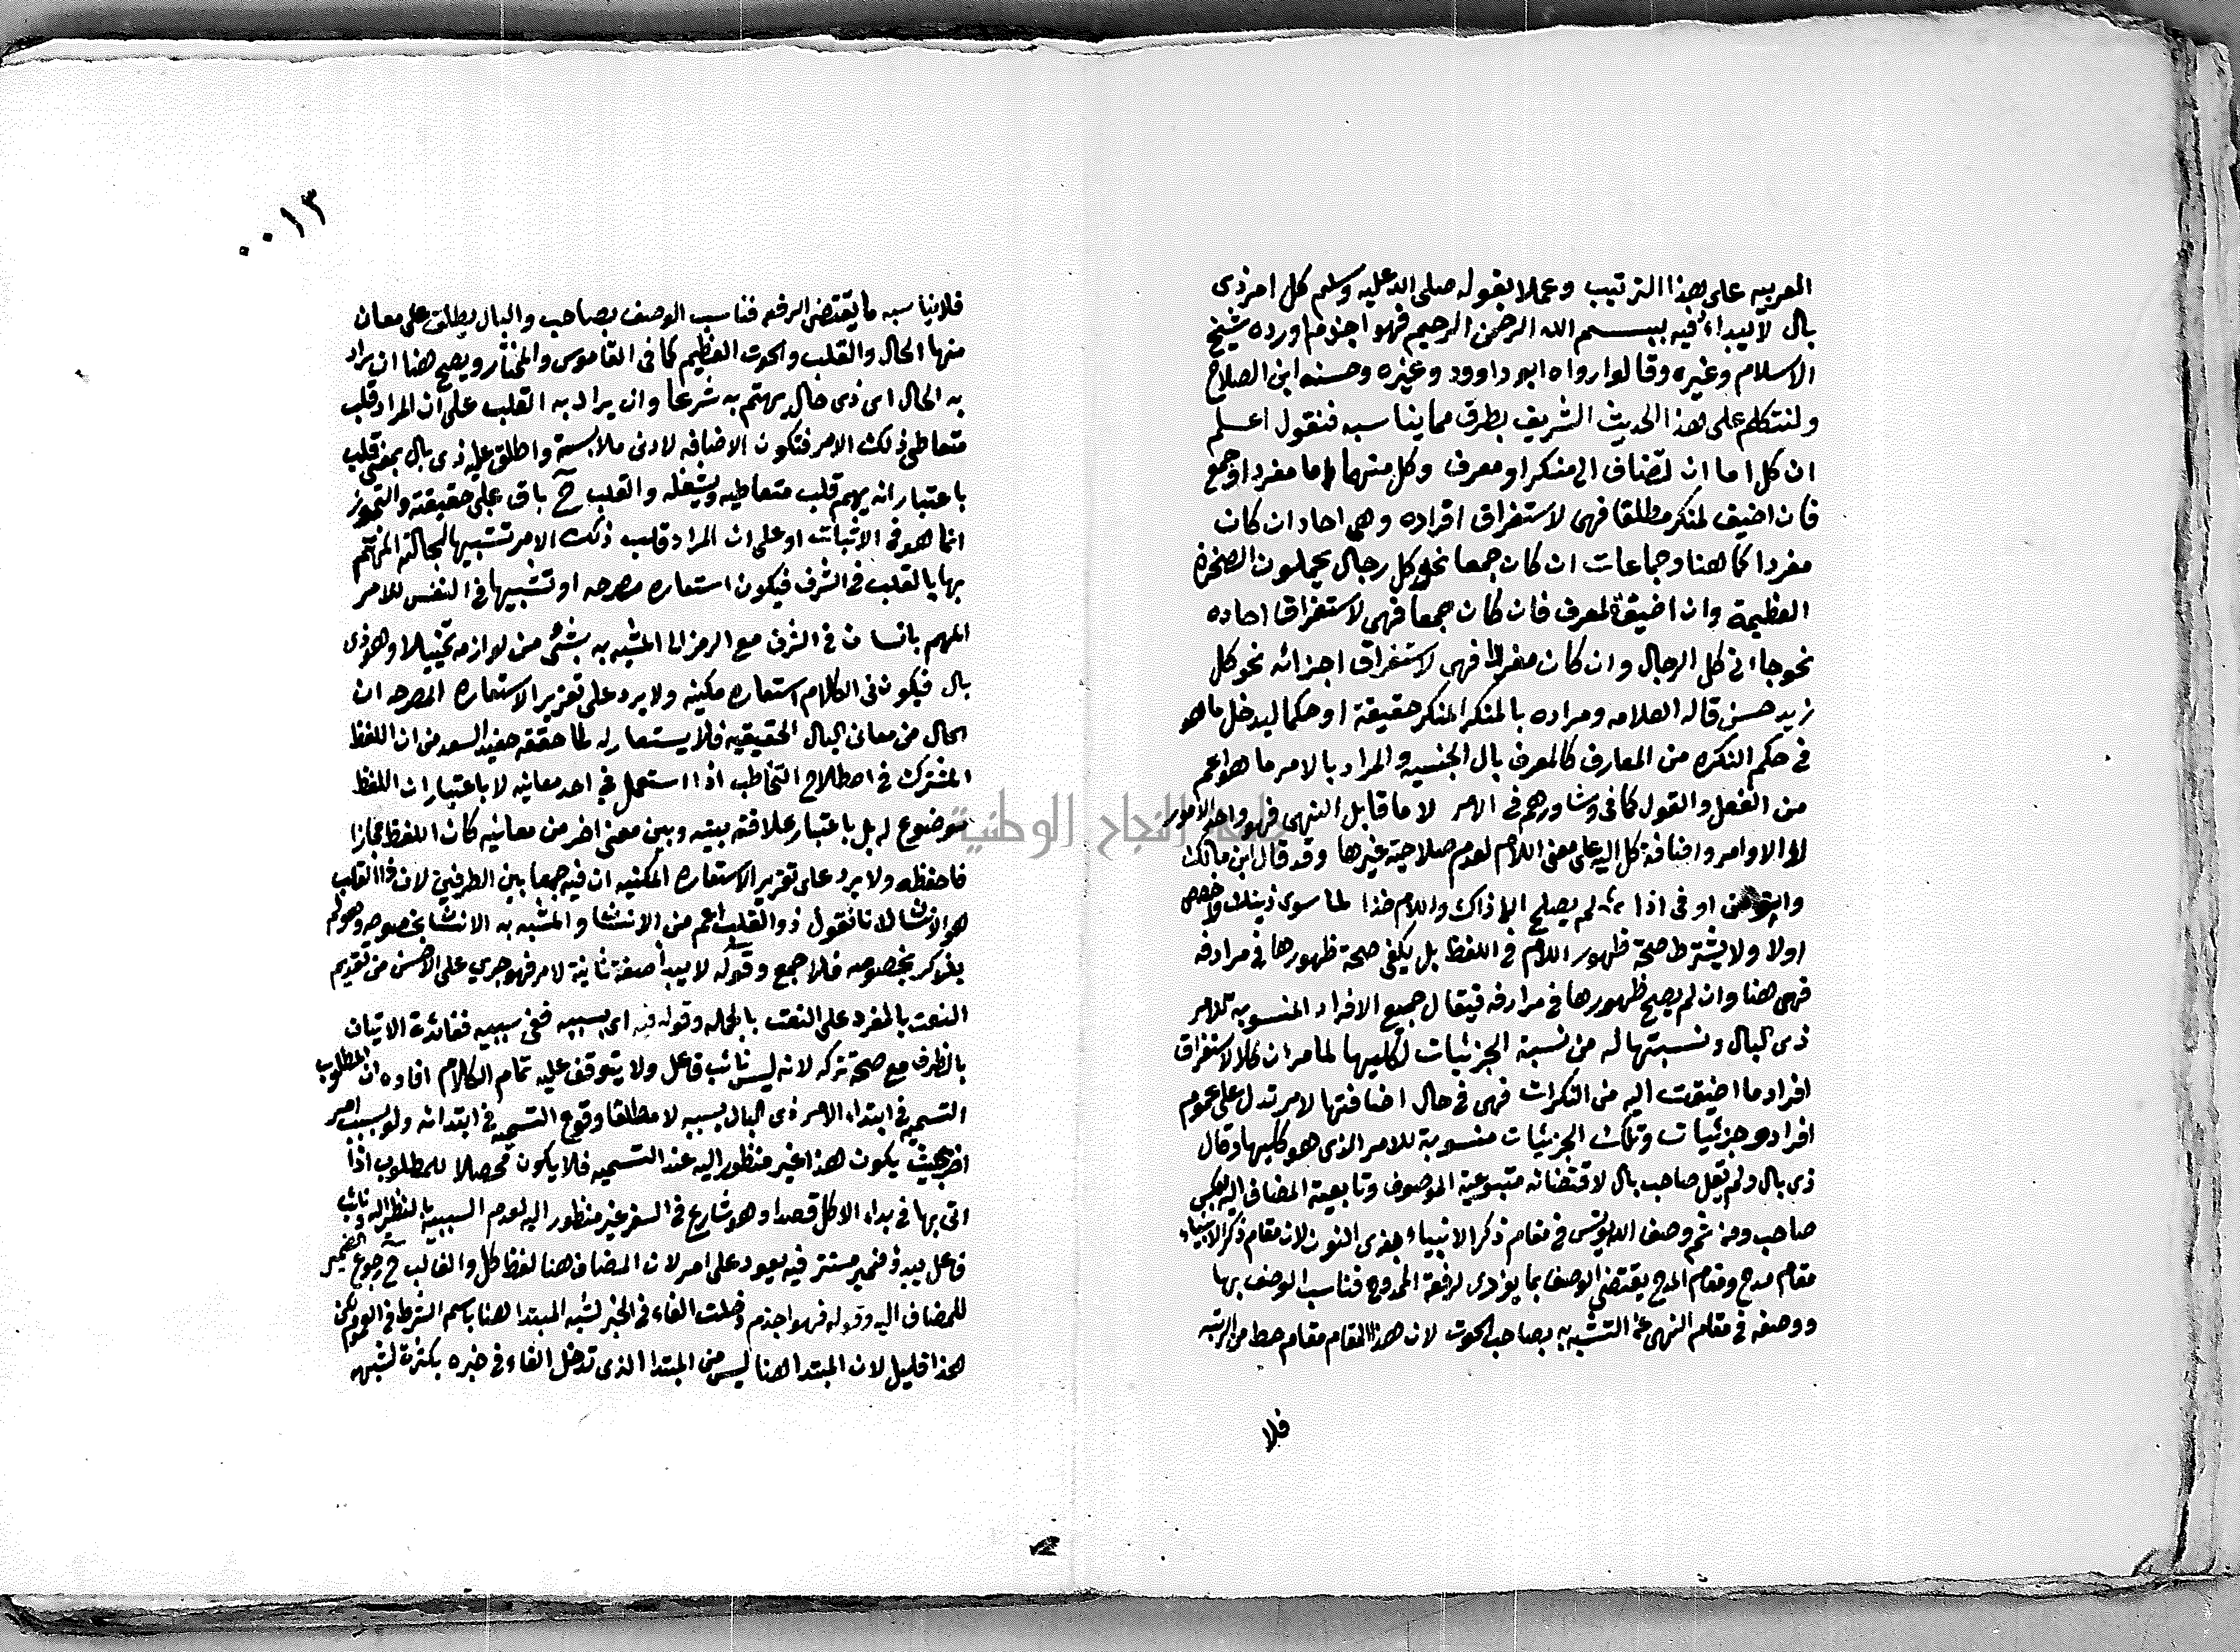 العربيه على هذا الترتيب وعملا بقوله صلى الله عليه وسلم كل امر ذى
بال لا يبداء فيه ببسم الله الرحمن الرحيم فهو اجذم اورده شيخ
الاسلام وغيره وقالوا رواه ابو داوود وغيره وحسنه ابن الصلاح
ولنتكلم على هذا الحديث الشريف بطرق مما يناسبه فنقول اعلم
ان كل اما ان تضاف الى منكر او معرف وكل منهما اما مفرد او جمع
فان اضيف لمنكر مطلقا فهى لاستغراق افراده وهى احاد ان كان
مفردا كما هنا وجماعات ان كان جمعا نحو كل رجال يحملون الصخرة
العظيمة وان اضيفة لمعرف فان كان جمعا فهى لاستغراق احاده
نحو جاء نى كل الرجال وان كان مفردا فهى لاستغراق اجزائه نحو كل
زيد حسن قاله العلامه ومراده بالمنكر المنكر حقيقة او حكما ليدخل ما هو
فى حكم النكره من المعارف كالمعرف بال الجنسيه والمراد بالامر ما هو اعم
من الفعل والقول كما فى وشاورهم فى الامر لا ما قابل النهى فهو واحد الامور
لا الاوامر واضافة كل اليه على معنى اللام لعدم صلاحية غيرها وقد قال ابن مالك
وانو من او فى اذا لم يصلح الا ذاك واللام خذا لما سوى ذينك واخصص
اولا ولا يشترط صحة ظهور اللام فى اللفظ بل يكفى صحة ظهورها فى مرادفه
فهى هنا وان لم يصح ظهورها فى مرادفه فيقال جميع الافراد المنسوبة للامر
ذى البال ونسبتها له من نسبة الجزئيات لكليها لما مر ان كلا لاستغراق
افراد ما اضيفت اليه من النكرات فهى فى حال اضافتها لامر تدل على عموم
افراده وجزئيات وتلك الجزئيات منسوبة للامر الذى هو كليها وقال
ذى بال ولم يقل صاحب بال لاقتضائه متبوعية الموصوف وتابعية المضاف اليه بعكس
صاحب ومن ثم وصف الله يونس فى مقام ذكر الانبياء بذى النون لان مقام ذكر الانبياء
مقام مدح ومقام المدح يقتضى الوصف بما يؤدى لرفعة الممدوح فناسب الوصف بها
ووصفه فى مقام النهى عن التشبه به بصاحب الحوت لان هذا المقام مقام حط من الرتبه
فلا
٠٠١٣
فلا يناسبه ما يقتضى الرفعه فناسب الوصف بصاحب والبال يطلق على معان
منها الحال والقلب والحوت العظيم كما فى القاموس والمختار ويصح هنا ان يراد
به الحال اى ذى حال يهتم به شرعا وان يراد به القلب على ان المراد قلب
متعاطى ذلك الامر فتكون الاضافه لادنى ملابسة واطلق عليه ذى بال بمعنى قلب
باعتبار انه يهم قلب متعاطيه ويشغله والقلب ح باق على حقيقته والتجوز
انما هو فى الاثبات او على ان المراد قلب ذلك الامر تشبيها لحالته المهتم
بها بالقلب فى الشرف فيكون استعاره مصرحه او تشبيها فى النفس للامر
المهم بانسان فى الشرف مع الرمز الى المشبه به بشئ من لوازمه تخييلا وهو ذى
بال فيكون فى الكلام استعاره مكنيه ولا يرد على تقرير الاستعاره المصرحه ان
الحال من معانى البال الحقيقيه فلا يستعار له لما حققه حفيد السعد من ان اللفظ
المشترك فى اصطلاح التخاطب اذا استعمل فى احد معانيه لا باعتبار ان اللفظ
موضوع له بل باعتبار علاقته بينه وبين معنى اخر من معانيه كان اللفظ مجازا
فاحفظه ولا يرد على تقرير الاستعاره المكنيه ان فيه جمعا بين الطرفين لان ذا القلب
هو الانسان لانا نقول ذو القلب اعم من الانسان والمشبه به الانسان بخصوصه وهو لم
يذكر بخصوصه فلا جمع وقوله لا يبدأ صفة ثانية لامر فهو جرى على الاحسن من تقديم
النعت بالمفرد على النعت بالجمله وقوله فيه اى بسببه ففى سببيه ففائدة الاتيان
بالظرف مع صحة تركه لانه ليس نائب فاعل ولا يتوقف عليه تمام الكلام افاده ان المطلوب
التسميه فى ابتداء الامر ذى البال بسببه لا مطلقا وقوع التسميه فى ابتدائه ولو بسبب امر
اخر بحيث يكون هذا غير منظور اليه عند التسميه فلا يكون محصلا للمطلوب اذا
اتى بها فى بداء الاكل قصدا وهو شارع فى السفر غير منظور اليه لعدم السببية بالنظر اليه ونائب
فاعل يبدؤ ضمير مستتر فيه يعود على امر لان المضاف هنا لفظ كل والغالب ح رجوع الضمير
للمضاف اليه وقوله فهو اجذم دخلت الفاء فى الخبر لشبه المبتدا هنا باسم الشرط فى العموم لكن
هذا قليل لان المبتدا هنا ليس من المبتدا الذى تدخل الفاء فى خبره بكثرة لشبهه
جامعة النجاح الوطنية